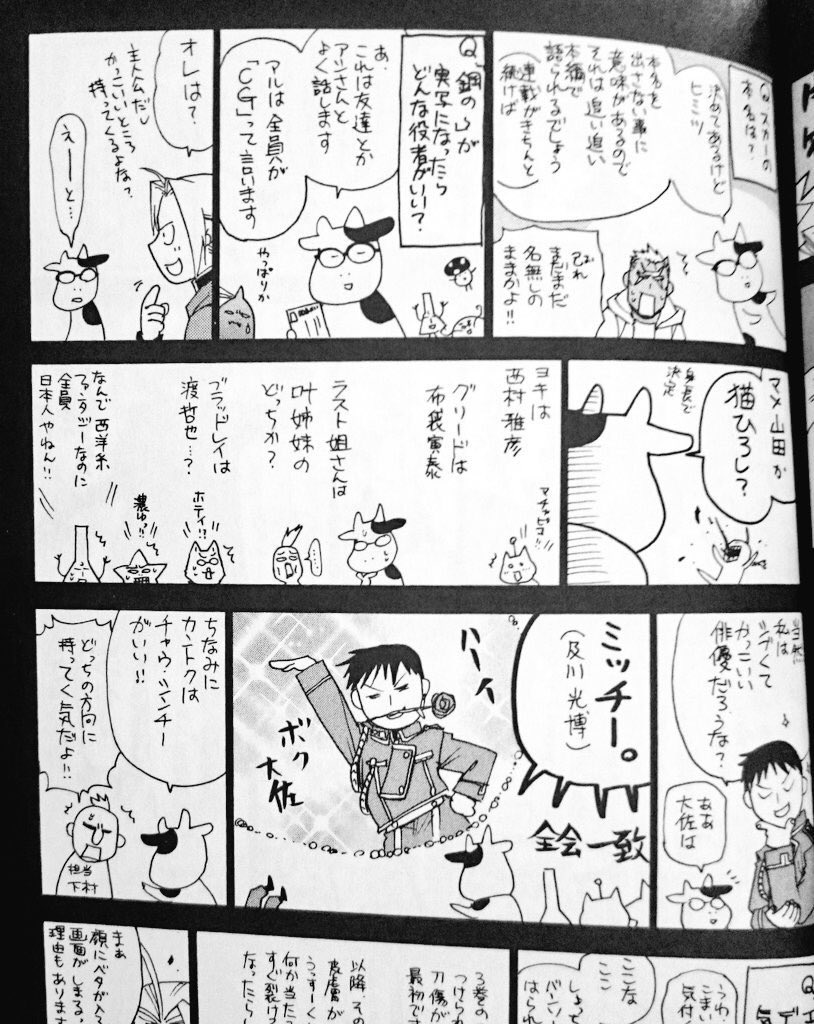 Q.スカーの
本名は?
決めてあるけど
ヒミツ
本名を
出さない事に
意味があるので
それは追い追い
本編で
語られるでしょう
連載がきちんと
続けば
おれ
まだまだ
名無しの
ままかよ!!
Q.「鋼の」が
実写になったら
どんな役者がいい?
あ、
これは友達とか
アシさんと
よく話します
アルは全員が
「CG」って言います
やっぱりか
オレは?
主人公だし
かっこいいところ
持ってくるよな?
えーと…
マメ山田か
猫ひろし?
身長で
決定
ヨキは
西村雅彦
グリードは
布袋寅泰
ラスト姐さんは
叶姉妹の
どっちか?
ブラッドレイは
渡哲也…?
なんで西洋系
ファンタジーなのに
全員
日本人やねん!!
マチャピコ!!
ホテイ!!
濃ゆっ!!
当然
私は
シブくて
かっこいい
俳優だろうな?
ああ
大佐は
ミッチー。
(及川光博)
全会一致
ハーイ
ボク
大佐
ちなみに
カントクは
チャウ・シンチー
がいい!!
どっちの方向に
持ってく気だよ!!
担当
下村
うわ
こまい
気付
こんな
ここ
しょっち
バンソー
はられ
3巻の
つけられ
刀傷が
最初です
以降、その
皮膚が
うっすーく
何か当たっ
すぐ裂ける
なったらし
まぁ
顔にベタが入る
画面がしまる、
理由もあります